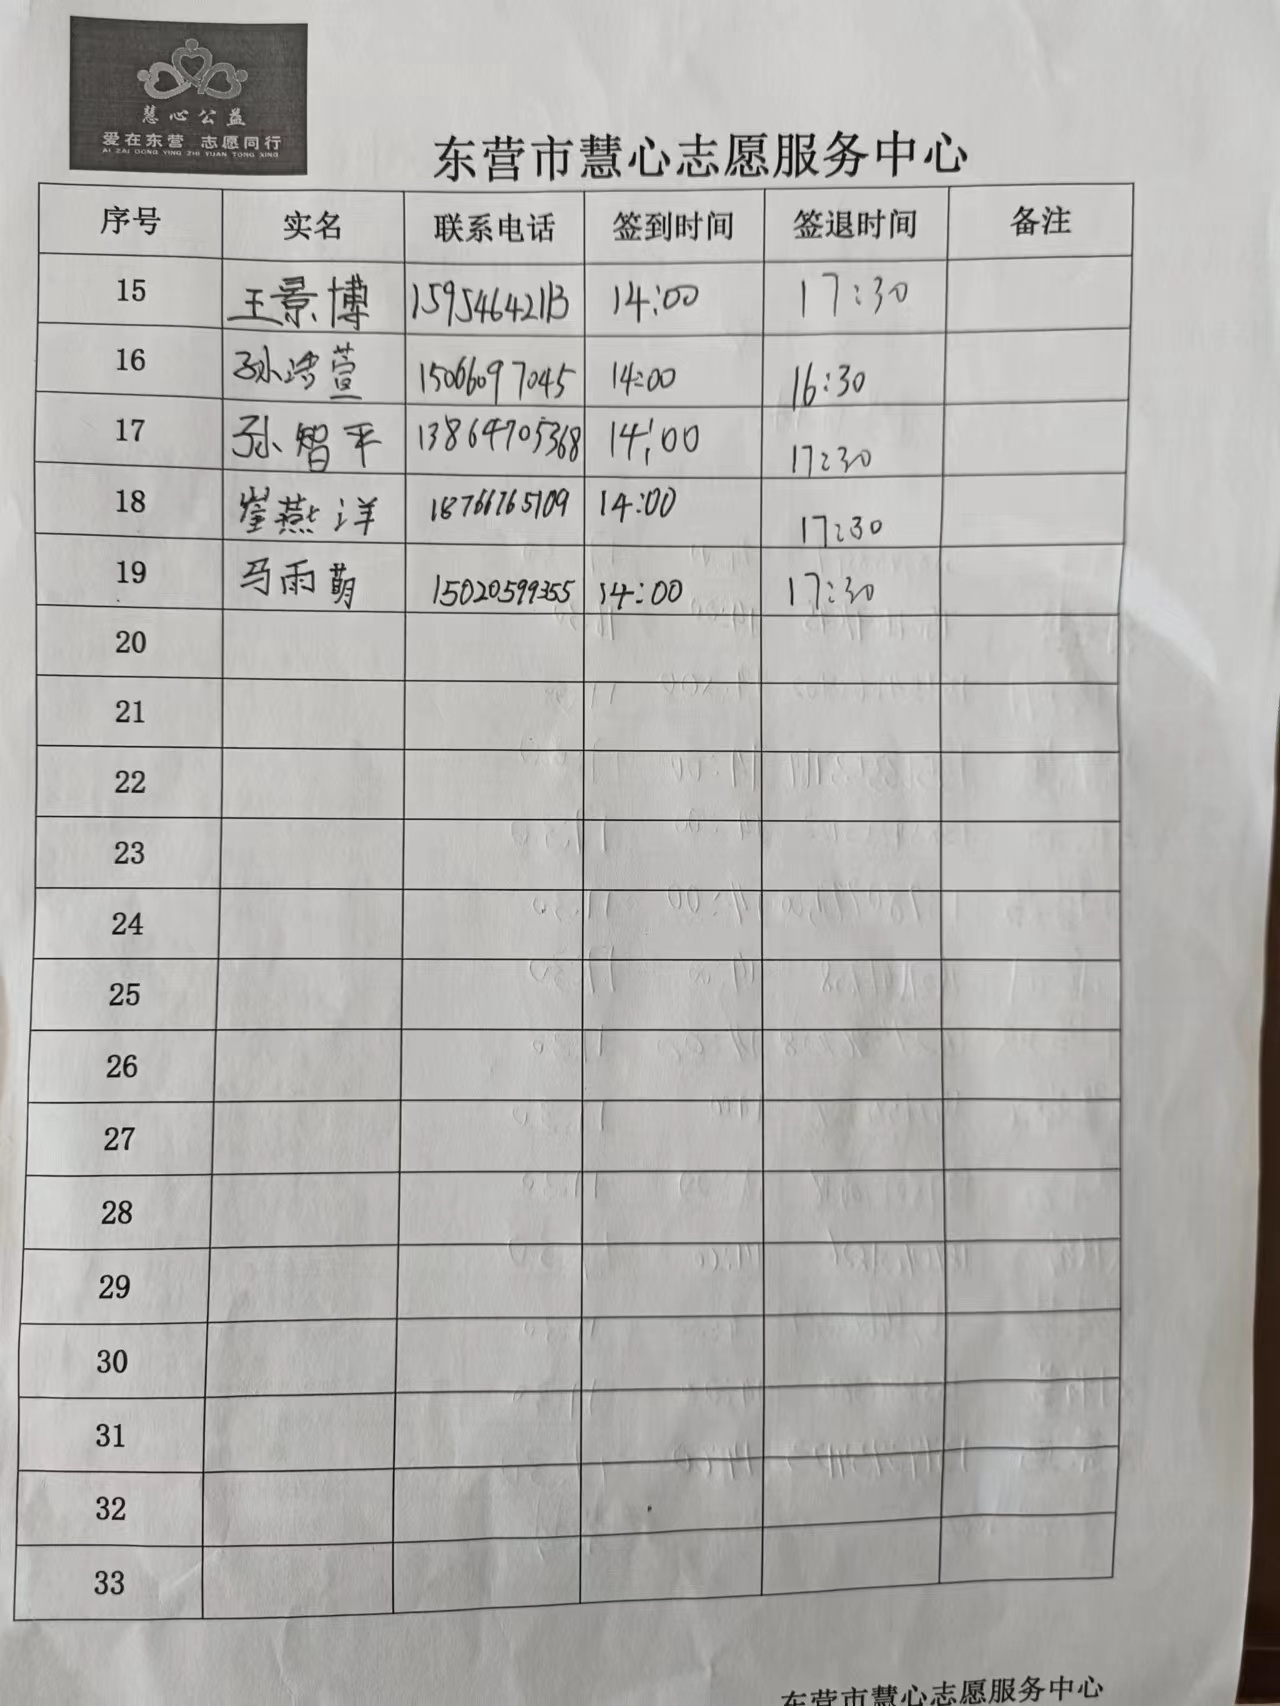 慧心公益
爱在东营 志愿同行
AI ZAI DONG YING ZHI YUAN TONG XING
东营市慧心志愿服务中心
序号 实名 联系电话 签到时间 签退时间 备注
15 王景博 15954642113 14:00 17:30
16 孙浩萱 15066097045 14:00 16:30
17 孙智平 13864705368 14:00 17:30
18 崔燕洋 18766765109 14:00 17:30
19 马雨萌 15020599355 14:00 17:30
20
21
22
23
24
25
26
27
28
29
30
31
32
33
东营市慧心志愿服务中心